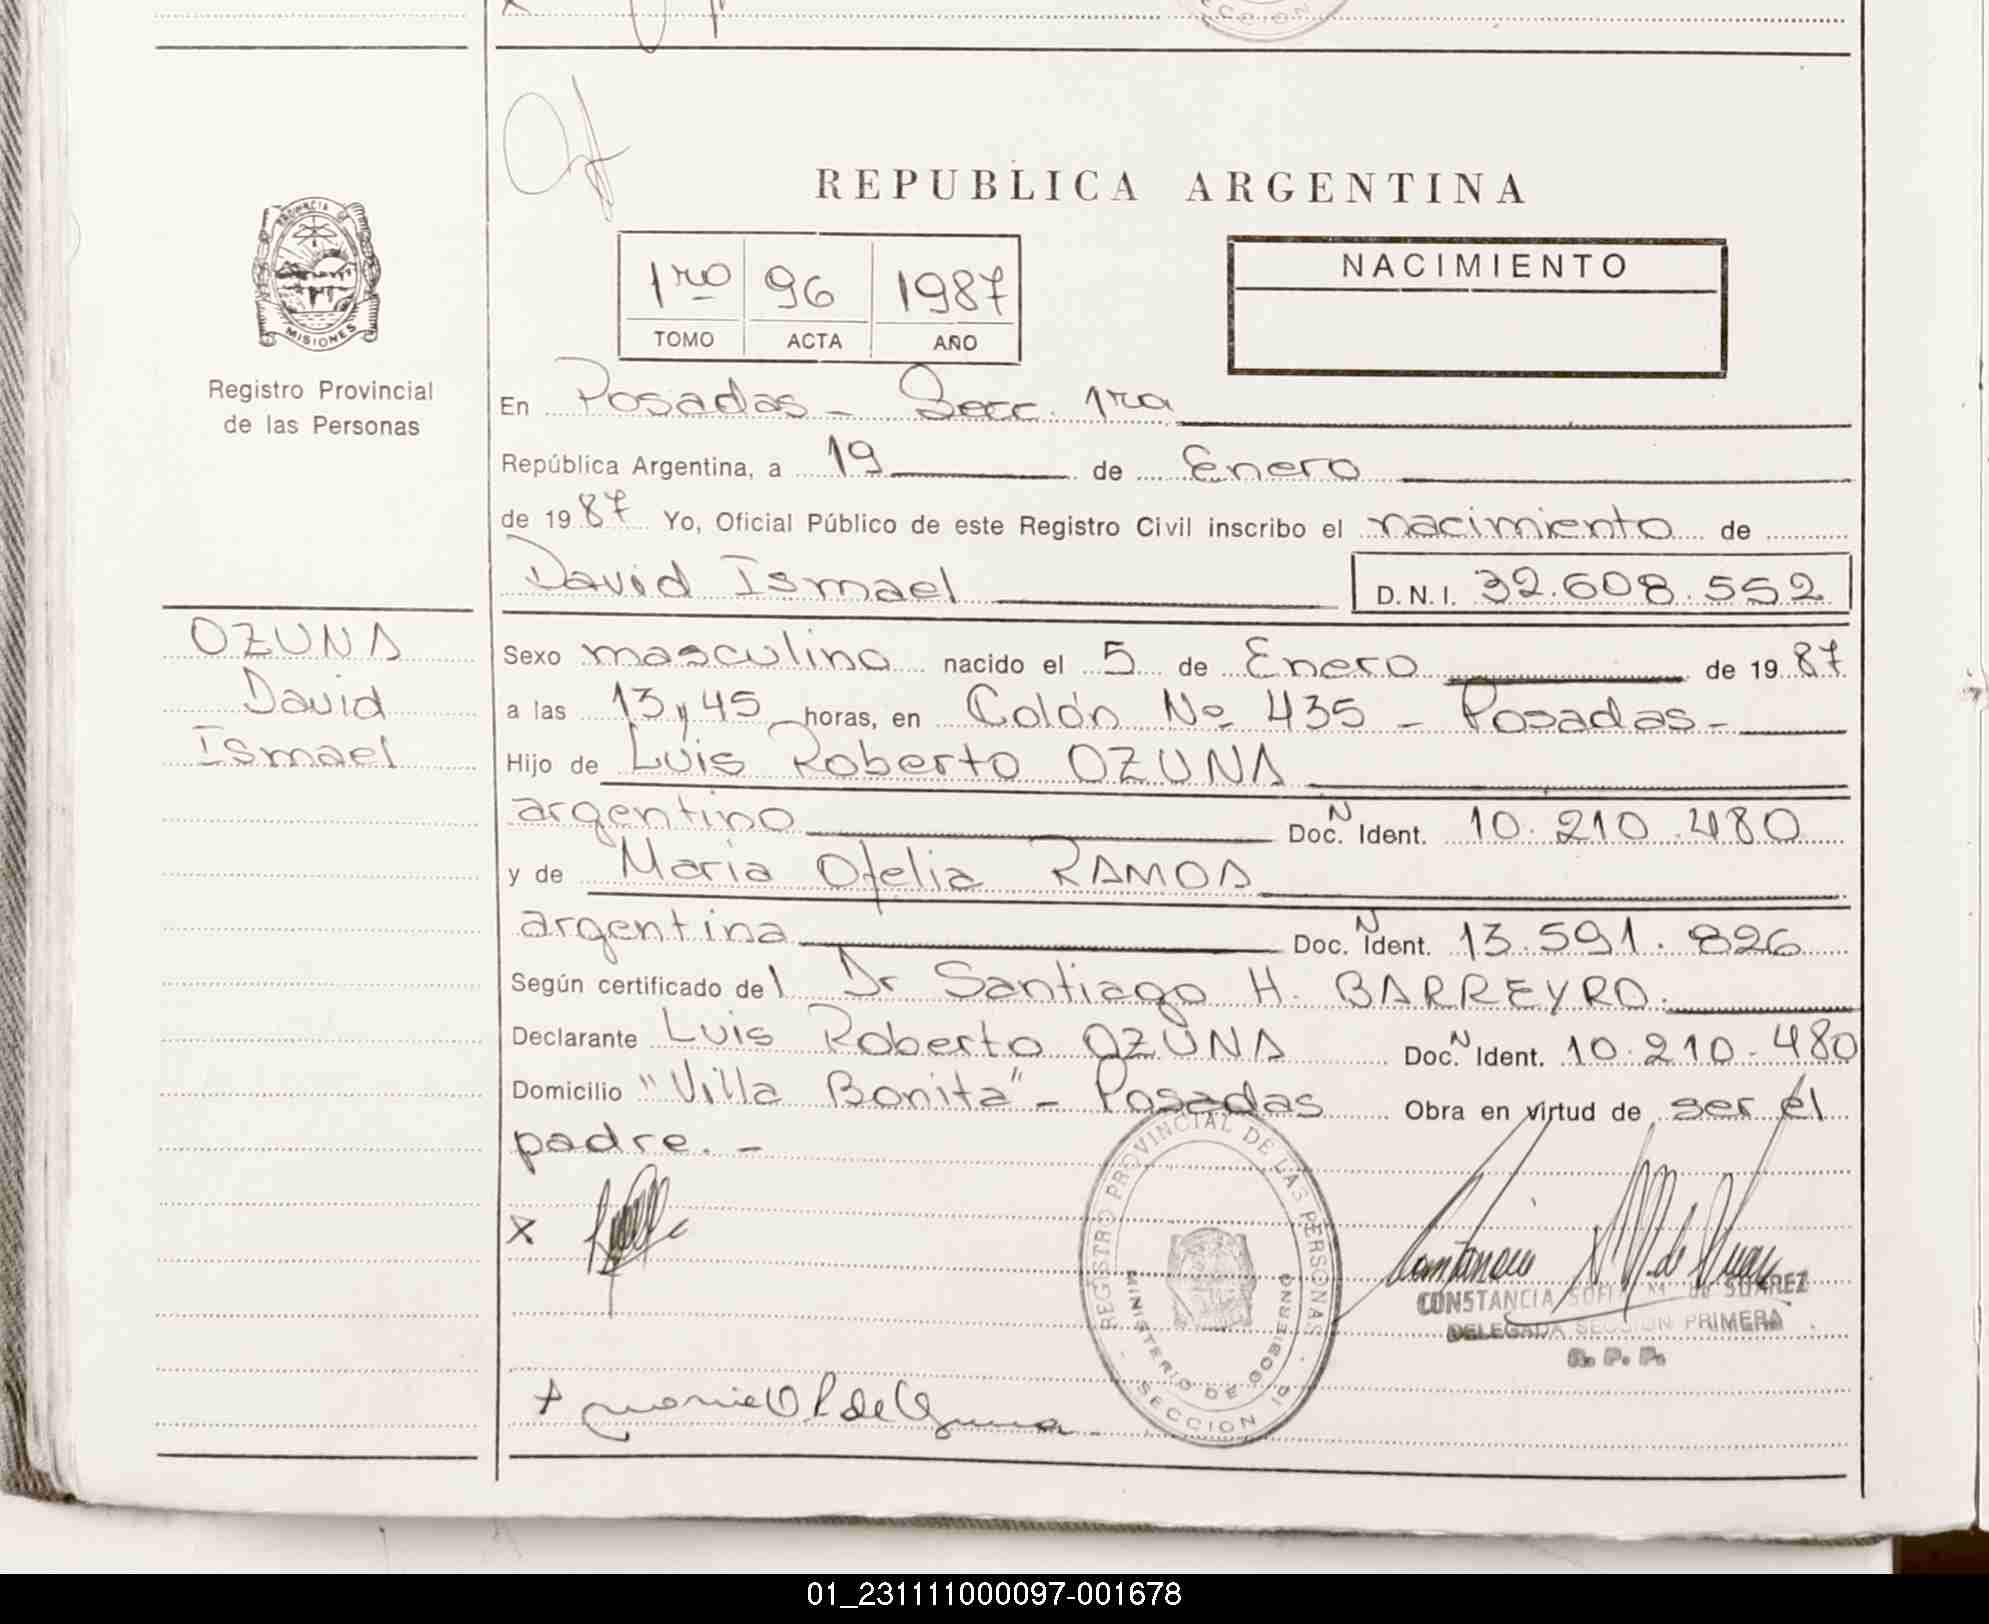 SECCION
REPUBLICA ARGENTINA
PROVINCIA DE
MISIONES
Registro Provincial
de las Personas
1ro 96 1987
TOMO ACTA AÑO
NACIMIENTO
En Posadas - Secc. 1ra
República Argentina, a 19 de Enero
de 1987 Yo, Oficial Público de este Registro Civil inscribo el nacimiento de
David Ismael D.N.I. 32.608.552
OZUNA
David
Ismael
Sexo masculino nacido el 5 de Enero de 1987
a las 13 y 45 horas, en Colón No 435 - Posadas -
Hijo de Luis Roberto OZUNA
argentino Doc. N Ident. 10.210.480
y de Maria Ofelia RAMOS
argentina Doc. N Ident. 13.591.826
Según certificado del Dr Santiago H. BARREYRO.
Declarante Luis Roberto OZUNA Doc. N Ident. 10.210.480
Domicilio "Villa Bonita" - Posadas Obra en virtud de ser el
padre. -
X
REGISTRO PROVINCIAL DE LAS PERSONAS
MINISTERIO DE GOBIERNO
SECCION 1a
CONSTANCIA M. de SUAREZ
DELEGADA SECCION PRIMERA
R. P. P.
01_231111000097-001678